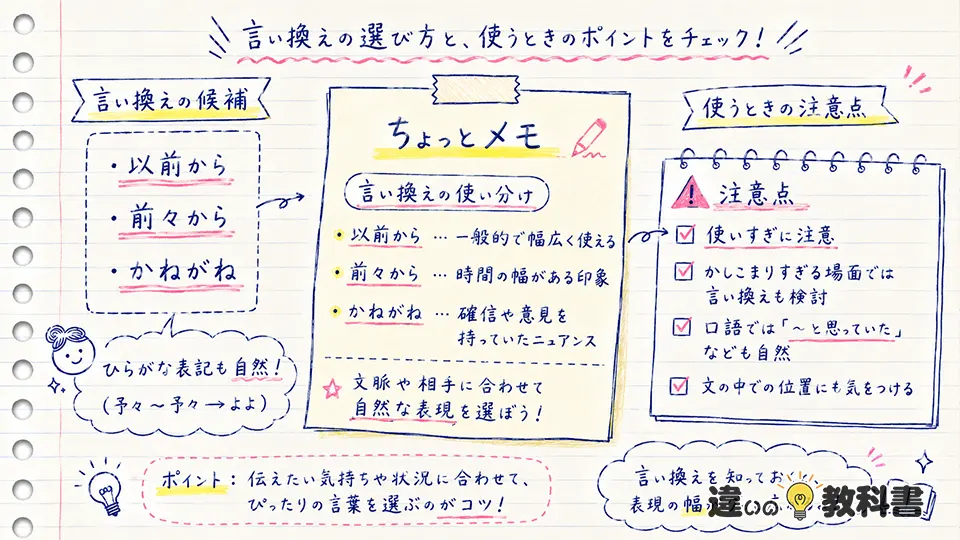 言い換えの選び方と、使うときのポイントをチェック!
言い換えの候補
・以前から
・前々から
・かねがね
ひらがな表記も自然!
(予々～予々→よよ)
ちょっとメモ
言い換えの使い分け
・以前から … 一般的で幅広く使える
・前々から … 時間の幅がある印象
・かねがね … 確信や意見を
持っていたニュアンス
☆ 文脈や相手に合わせて
自然な表現を選ぼう!
使うときの注意点
! 注意点
☑ 使いすぎに注意
☑ かしこまりすぎる場面では
言い換えも検討
☑ 口語では「～と思っていた」
なども自然
☑ 文の中での位置にも気をつける
ポイント: 伝えたい気持ちや状況に合わせて、
ぴったりの言葉を選ぶのがコツ!
言い換えを知ってお
表現の幅
違いの教科書